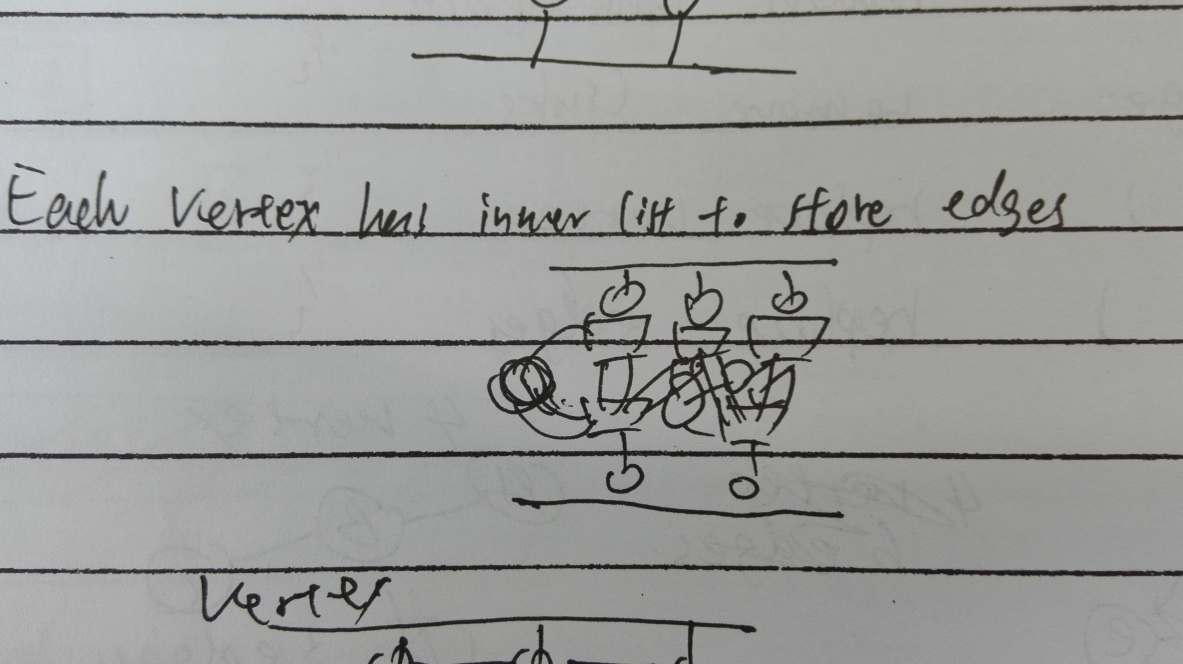 Each Vertex has inner list to store edges
Vertex